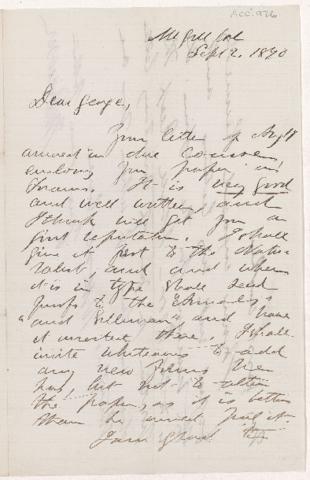 Acc. 976
McGill Col
Sept 2. 1870
Dear George,
Your letter of Aug 18
arrived in due course,
enclosing your paper on
It is very good
and well written and
I think will get you a
first reputation. I shall
give it first to the
and when
it is in type shall send
proofs to the "Annals"
"and Silliman" and have
it inserted there. I shall
invite Whiteaves to add
any new forms he
has, but not to alter
the paper, as it is better
than he would put it.
I am glad